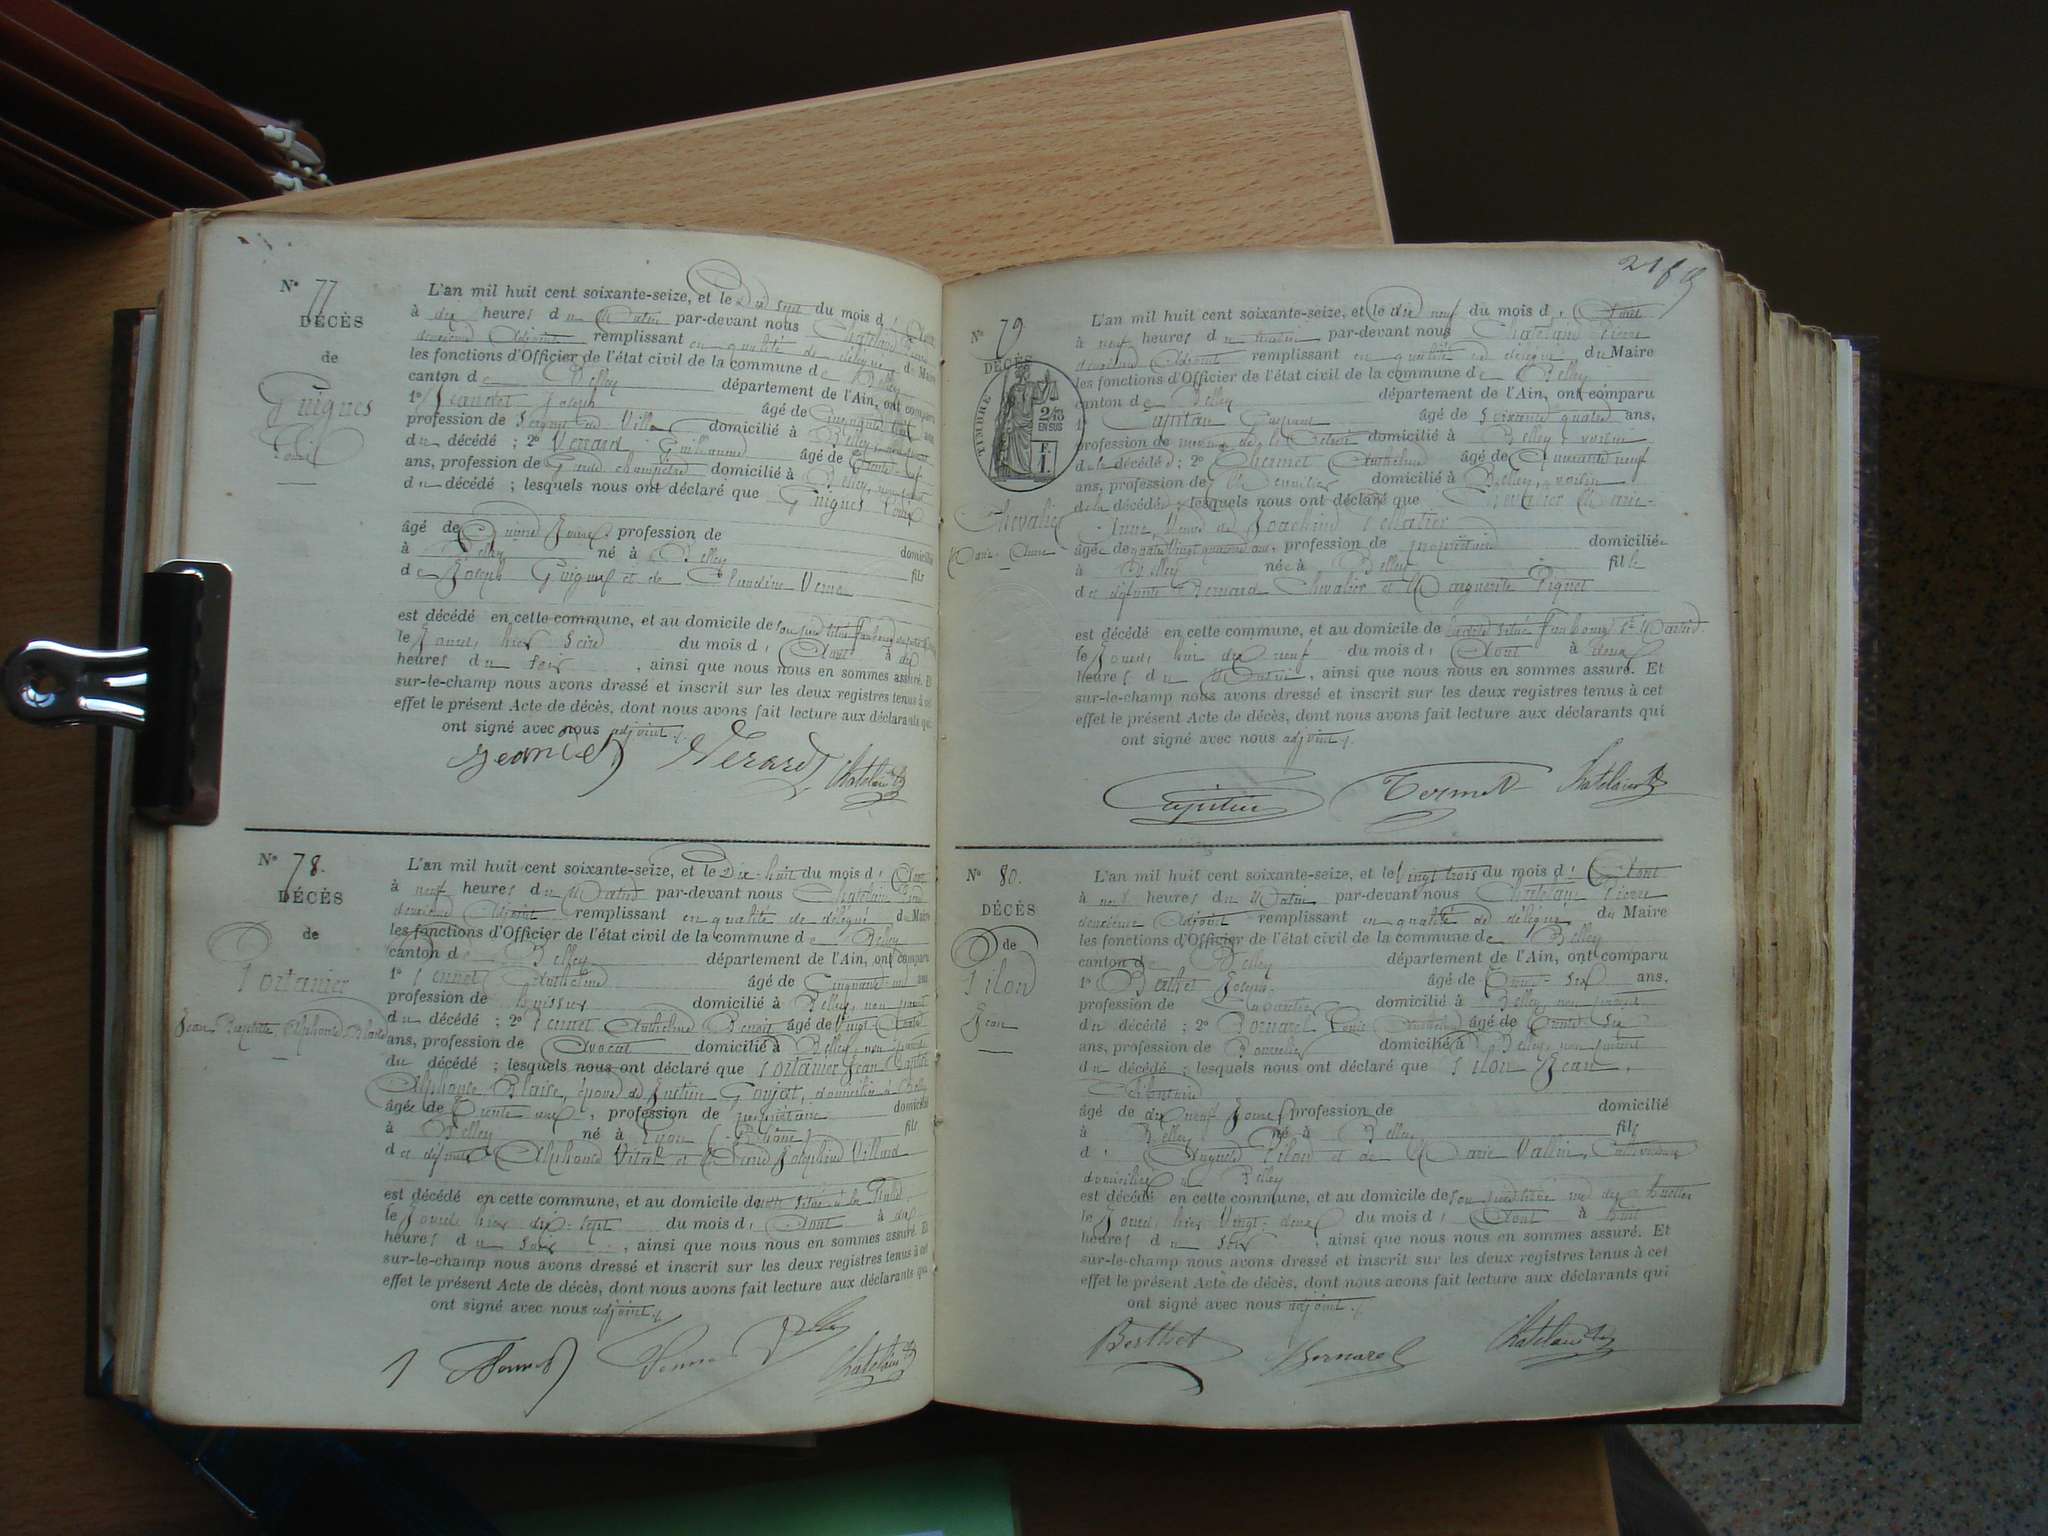 N° 77
DÉCÈS
de
Guigues
Louis
L'an mil huit cent soixante-seize, et le Dix sept du mois d' Août
à dix heures du Matin par-devant nous Chatelain Pierre
deuxième Adjoint remplissant en qualité de délégué du Maire
les fonctions d'Officier de l'état civil de la commune de Belley
canton de Belley département de l'Ain, ont comparu
1° Joseph âgé de Cinquante huit ans
profession de Sergent de Ville domicilié à Belley, non parent
du décédé ; 2° Verard Guillaume âgé de
ans, profession de Garde champêtre domicilié à Belley, non parent
du décédé ; lesquels nous ont déclaré que Guigues Louis
âgé de Quinze Jours profession de
à Belley né à Belley domicilié
de Joseph Guigues et de Claudine Verne fils
est décédé en cette commune, et au domicile de son père situé
le Jourd' hier Seize du mois d' Août à dix
heures du soir, ainsi que nous nous en sommes assuré. Et
sur-le-champ nous avons dressé et inscrit sur les deux registres tenus à cet
effet le présent Acte de décès, dont nous avons fait lecture aux déclarants qui
ont signé avec nous adjoint
Verard Chatelain
N° 78.
DÉCÈS
de
Portanier
Jean Baptiste Alphonse Blaise
L'an mil huit cent soixante-seize, et le Dix-huit du mois d' Août
à neuf heures du Matin par-devant nous Chatelain Pierre
deuxième Adjoint remplissant en qualité de délégué du Maire
les fonctions d'Officier de l'état civil de la commune de Belley
canton de Belley département de l'Ain, ont comparu
1° Anthelme âgé de Cinquante ans
profession de huissier domicilié à Belley, non parent
du décédé ; 2° Anthelme Benoit âgé de Vingt
ans, profession de Avocat domicilié à Belley, non parent
du décédé ; lesquels nous ont déclaré que Portanier Jean Baptiste
Alphonse Blaise, époux de Justine Goujat, domicilié à Belley
âgé de Trente neuf, profession de propriétaire domicilié
à Belley né à Lyon (Rhône) fils
des défunts Alphonse Vital et Joséphine Villard
est décédé en cette commune, et au domicile de
le Jourd' hier dix-sept du mois d' Août à dix
heures du soir, ainsi que nous nous en sommes assuré. Et
sur-le-champ nous avons dressé et inscrit sur les deux registres tenus à cet
effet le présent Acte de décès, dont nous avons fait lecture aux déclarants qui
ont signé avec nous adjoint
Chatelain
N° 79
DÉCÈS
TIMBRE
2/10
EN SUS
F.
1.
Chevalier
Marie-Anne
L'an mil huit cent soixante-seize, et le dix neuf du mois d' Août
à neuf heures du matin par-devant nous Chatelain Pierre
deuxième Adjoint remplissant en qualité de délégué du Maire
les fonctions d'Officier de l'état civil de la commune de Belley
canton de Belley département de l'Ain, ont comparu
1° Capitan âgé de Soixante quatre ans,
profession de domicilié à Belley, voisin
de la décédée ; 2° Anthelme âgé de Quarante neuf
ans, profession de Menuisier domicilié à Belley, voisin
de la décédée ; lesquels nous ont déclaré que Chevalier Marie-
Anne, Veuve de Joachim
âgée de quatre vingt ans, profession de propriétaire domiciliée
à Belley née à Belley fille
des défunts Bernard Chevalier et Marguerite Pignet
est décédée en cette commune, et au domicile de situé faubourg St Martin
le Jourd' hui dix neuf du mois d' Août à deux
heures du Matin, ainsi que nous nous en sommes assuré. Et
sur-le-champ nous avons dressé et inscrit sur les deux registres tenus à cet
effet le présent Acte de décès, dont nous avons fait lecture aux déclarants qui
ont signé avec nous adjoint
Chatelain
N° 80.
DÉCÈS
de
Pilon
Jean
L'an mil huit cent soixante-seize, et le Vingt trois du mois d' Août
à neuf heures du Matin par-devant nous Chatelain Pierre
deuxième Adjoint remplissant en qualité de délégué du Maire
les fonctions d'Officier de l'état civil de la commune de Belley
canton de Belley département de l'Ain, ont comparu
1° Berthet Joseph âgé de Trente-six ans,
profession de domicilié à Belley, non parent
du décédé ; 2° Bornarel Louis Anthelme âgé de Trente six
ans, profession de Bourrelier domicilié à Belley, non parent
du décédé ; lesquels nous ont déclaré que Pilon Jean,
âgé de dix neuf Jours profession de domicilié
à Belley né à Belley fils
d' Auguste Pilon et de Marie Vallin, Cultivateurs
domiciliés à Belley
est décédé en cette commune, et au domicile de son père situé rue des
le Jourd' hier Vingt-deux du mois d' Août à huit
heures du soir, ainsi que nous nous en sommes assuré. Et
sur-le-champ nous avons dressé et inscrit sur les deux registres tenus à cet
effet le présent Acte de décès, dont nous avons fait lecture aux déclarants qui
ont signé avec nous adjoint
Berthet Bornarel Chatelain